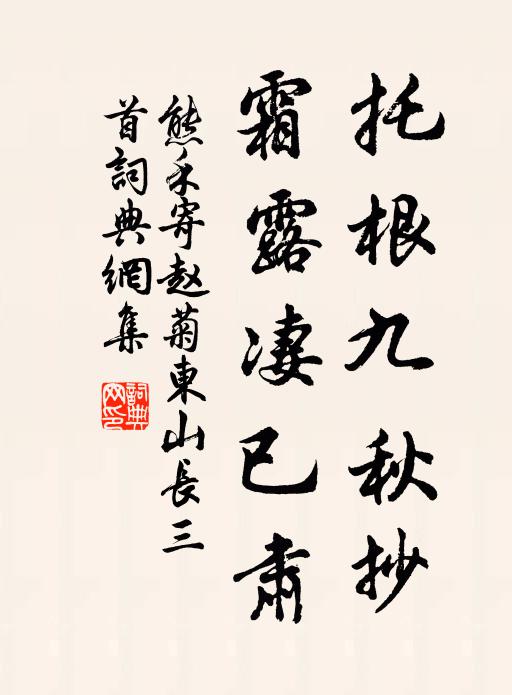 托根九秋抄
霜露凄已肃
熊禾寄赵菊東山長三
首詞典網集
詞典網印